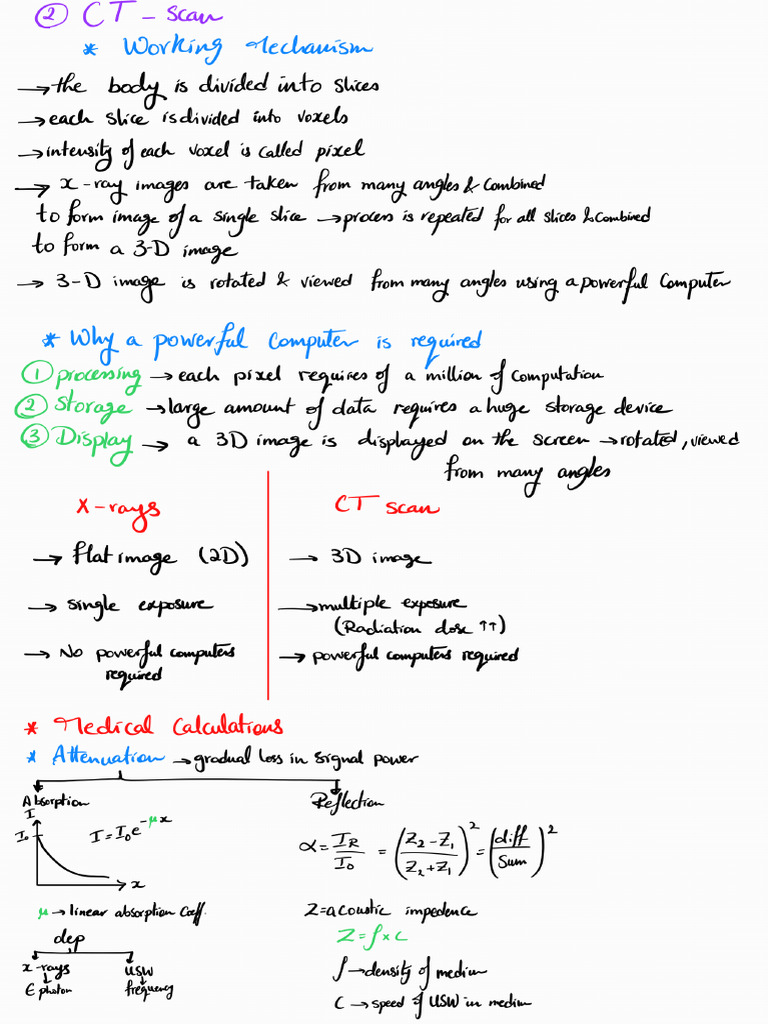 ② CT - scan
* Working Mechanism
→ the body is divided into slices
→ each slice is divided into voxels
→ intensity of each voxel is called pixel
→ x-ray images are taken from many angles & combined
to form image of a single slice → process is repeated for all slices & combined
to form a 3-D image
→ 3-D image is rotated & viewed from many angles using a powerful computer
* Why a powerful computer is required
① processing → each pixel requires of a million of computation
② Storage → large amount of data requires a huge storage device
③ Display → a 3D image is displayed on the screen → rotated, viewed
from many angles
X-rays
→ flat image (2D)
→ single exposure
→ No powerful computers
required
CT scan
→ 3D image
→ multiple exposure
(Radiation dose ↑↑)
→ powerful computers required
* Medical Calculations
* Attenuation → gradual loss in signal power
Absorption
I
I₀
I = I₀e^-μx
x
μ → linear absorption coeff.
dep
x-rays USW
E photon frequency
Reflection
α = I_R/I₀ = (Z₂-Z₁/Z₂+Z₁)² = (diff/Sum)²
Z = acoustic impedence
Z = ρ × c
ρ → density of medium
C → speed of USW in medium